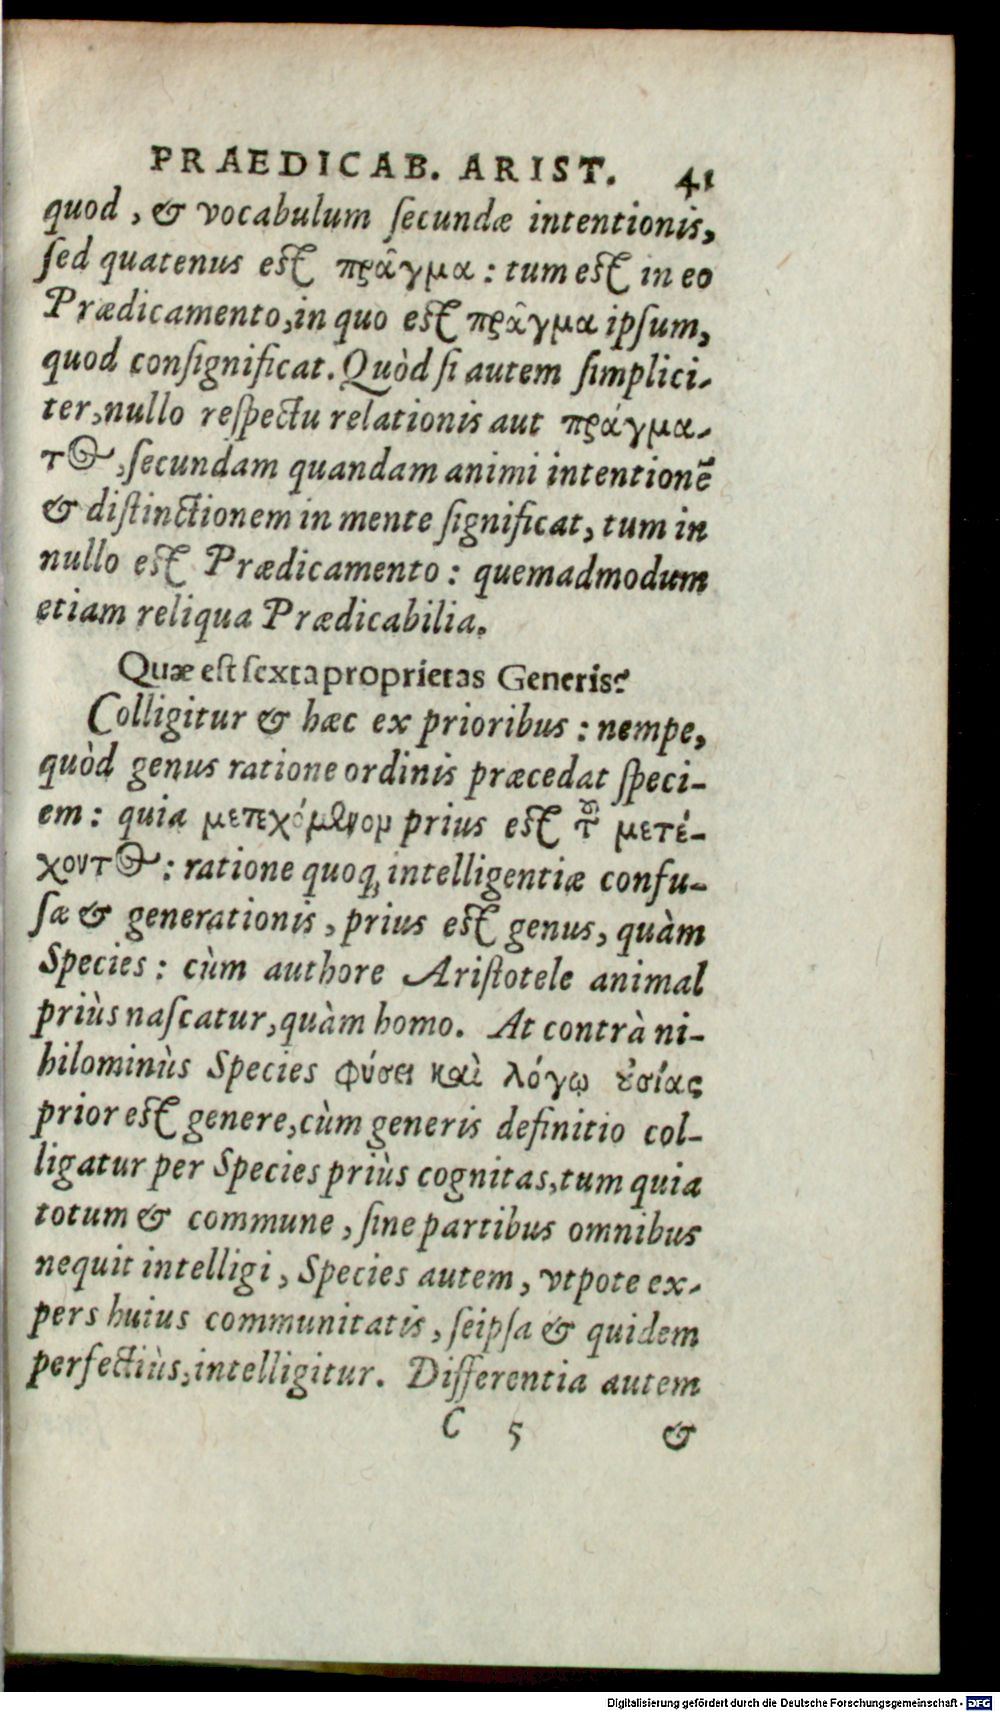 PRAEDICAB. ARIST. 41
quod, & vocabulum ſecundæ intentionis,
ſed quatenus eſt πρᾶγμα: tum eſt in eo
Prædicamento, in quo eſt πρᾶγμα ipſum,
quod conſignificat. Quòd ſi autem ſimplici-
ter, nullo reſpectu relationis aut πράγμα-
τος, ſecundam quandam animi intentionē
& diſtinctionem in mente ſignificat, tum in
nullo eſt Prædicamento: quemadmodum
etiam reliqua Prædicabilia.
Quæ est ſexta proprietas Generis?
Colligitur & hæc ex prioribus: nempe,
quòd genus ratione ordinis præcedat ſpeci-
em: quia μετεχόμενον prius eſt τοῦ μετέ-
χοντος: ratione quoq; intelligentiæ confu-
ſæ & generationis, prius eſt genus, quàm
Species: cùm authore Ariſtotele animal
priùs naſcatur, quàm homo. At contrà ni-
hilominùs Species φύσει καὶ λόγῳ οὐσίας
prior eſt genere, cùm generis definitio col-
ligatur per Species priùs cognitas, tum quia
totum & commune, ſine partibus omnibus
nequit intelligi, Species autem, vtpote ex-
pers huius communitatis, ſeipſa & quidem
perfectiùs, intelligitur. Differentia autem
C 5 &
Digitalisierung gefördert durch die Deutsche Forschungsgemeinschaft - DFG